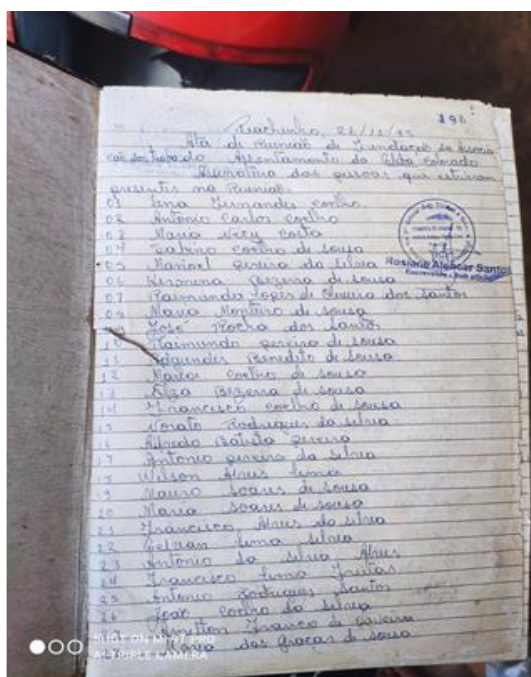 190
Riachinho, 26/11/95
Ata de Reunião de Fundação da Associa
ção dos Assentamento
Assinatura das pessoas que estiveram
presentes na Reunião.
01 Lima Fernandes Coelho
02 Antonio Carlos Coelho
03 Maria Costa
04 Sabino Coelho de Sousa
05 Manoel Pereira da Silva
06 Bezerra de Sousa
07 Raimunda Lopes de Oliveira dos Santos
08 Maria Monteiro de Sousa
09 José Rocha dos Santos
10 Raimundo Pereira de Sousa
11 Benedito de Sousa
12 Maria Coelho de Sousa
13 Elza Bezerra de Sousa
14 Francisco Coelho de Sousa
15 Nonato Rodrigues da Silva
16 Alfredo Batista Pereira
17 Antonio Pereira da Silva
Wilson Alves Lima
19 Mauro Soares de Sousa
20 Maria Soares de Sousa
21 Francisco Alves da Silva
22 Lima Silva
23 Antonio da Silva Alves
24 Francisco Lima Freitas
25 Antonio Rodrigues Santos
26 João Coelho da Silva
Francisco de Oliveira
Maria das Graças de Sousa
Rosiane Alencar Santos
SHOT ON MI 9T PRO
AI TRIPLE CAMERA